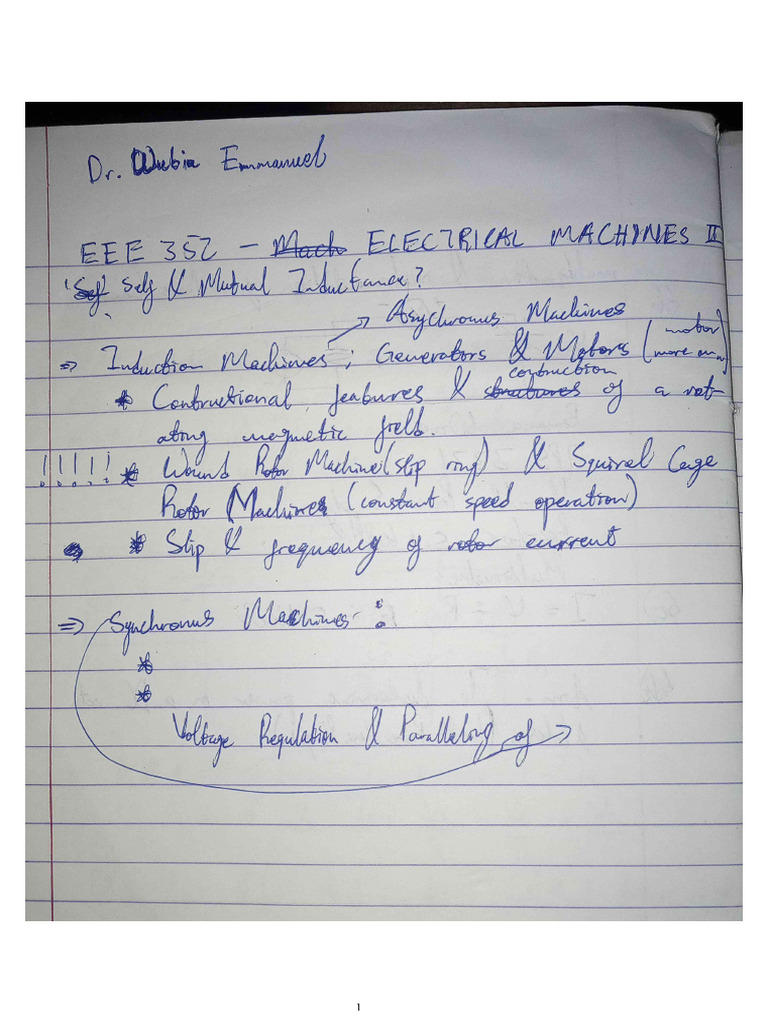 Dr. Wubia Emmanuel
EEE 352 - Mach ELECTRICAL MACHINES II
'Sef Self & Mutual Inductance?
→ Asychronus Machines
⇒ Induction Machines ; Generators & Motors (motor more am)
* Contructional features & structures contruction of a rot-
ating magnetic field.
!!!!! * Wound Rotor Machine (slip ring) & Squiral Cage
Rotor Machines (constant speed operation)
* Slip & frequency of rotor current
⇒ Synchronus Machines :
*
*
Voltage Regulation & Paralleling of →
1